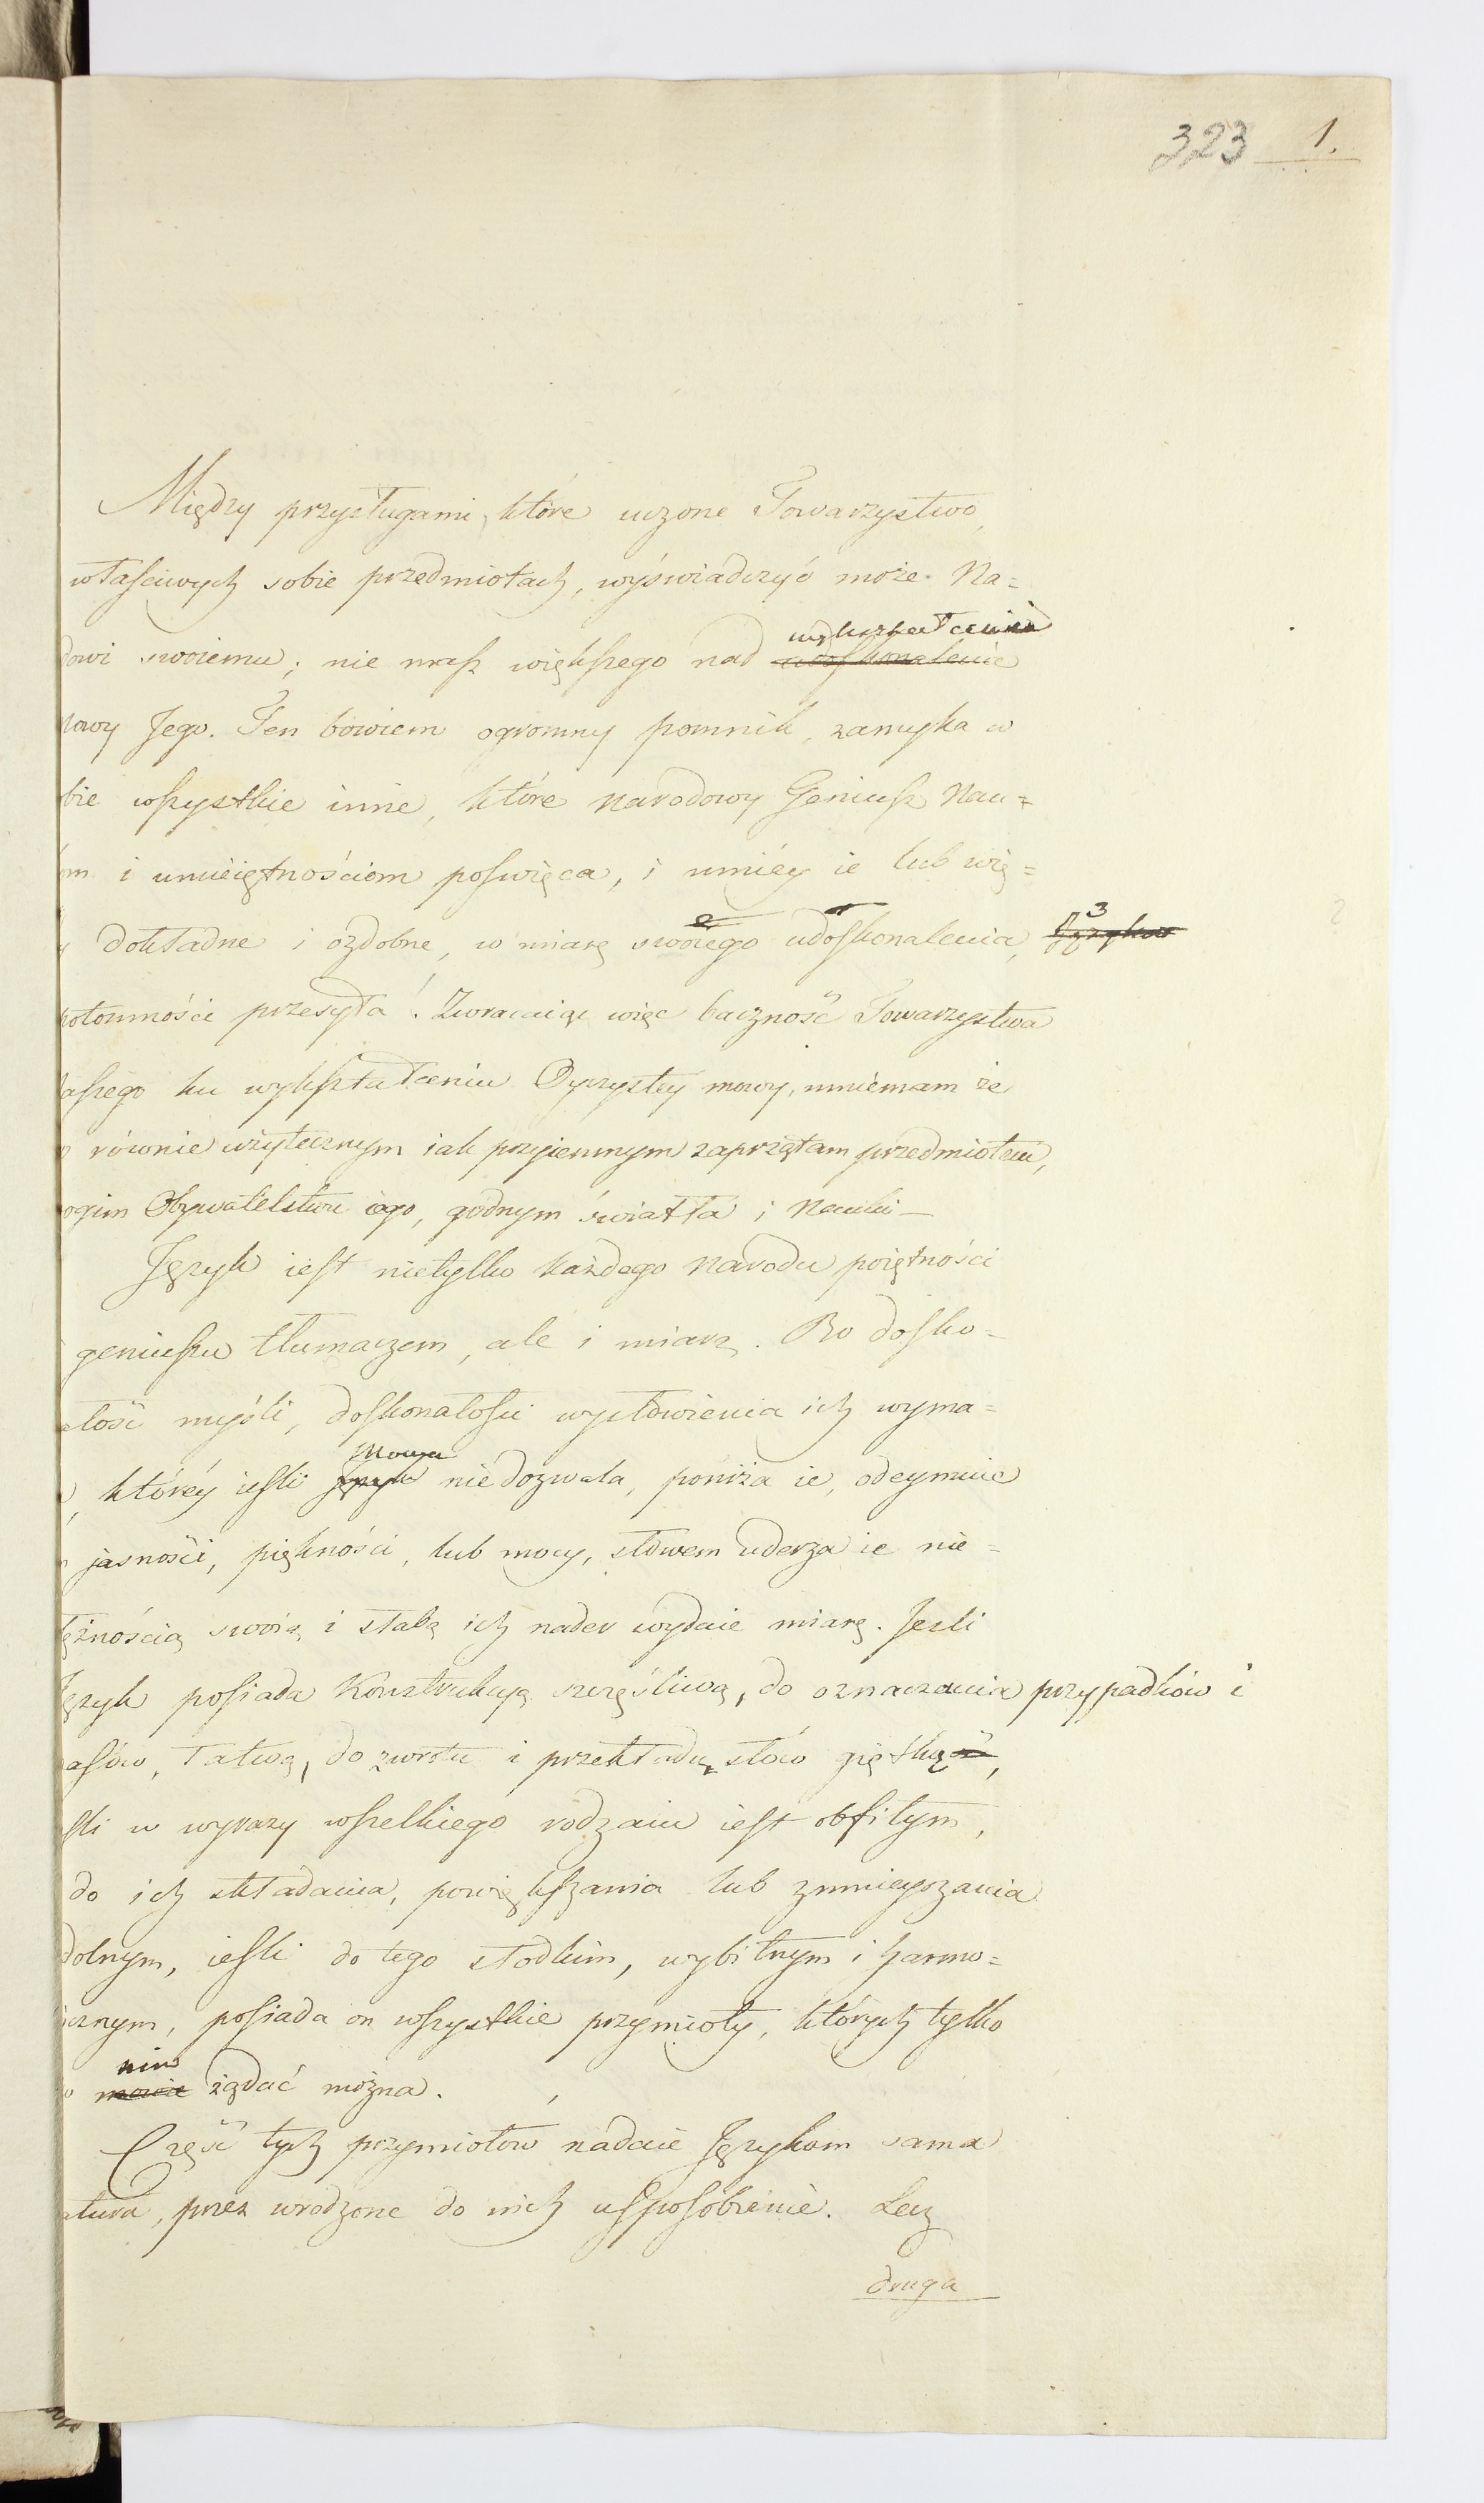 323 1.
Między przysługami, które uczone Towarzystwo
właściwych sobie przedmiotach, wyświadczyć może Na=
dowi swoiemu; nie masz większego nad udoskonalenie wykształcenie
mowy Jego. Ten bowiem ogromny pomnik, zamyka w
bie wszystkie inne, które Narodowy Geniusz Nau=
om i umieiętnościom poswięca, i umiéy ie lub wię=
y dokładne i ozdobne, w miarę swoiego 2 udoskonalenia, Języków 3
potomności przesyła! Zwracaiąc więc baczność Towarzystwa
aszego ku wykształceniu Oyczystéy mowy, mniemam że
o równie użytecznym iak przyiemnym zaprzątam przedmiotem,
ogim Obywatelstwu iego, godnym światła i Nauki —
Język iest nietylko każdego Narodu poiętności
geniuszu tłumaczem, ale i miarą. Bo dosko=
ałość myśli, doskonałości wysłowienia ich wyma=
, któréy iesli Język Mowa niedozwala, poniża ie, odeymuie
jasności, piękności, lub mocy, słowem uderza ie nie=
ężnością swoią, i słabą ich nader wydaie miarę. Jesli
Język posiada Konstrukcyą szczęśliwą, do oznaczania przypadków i
asów, łatwą, do zwrotu i przekładu słów giętką,
sli w wyrazy wszelkiego rodzaiu iest obfitym,
do ich składania, powiększania lub zmnieyszania
dolnym, iesli do tego słodkim, wybitnym i harmo=
icznym, posiada on wszystkie przymioty, których tylko
o mowie nim żądać można.
Część tych przymiotów nadaie Językom sama
atura, przez wrodzone do nich usposobienie. Lecz
druga